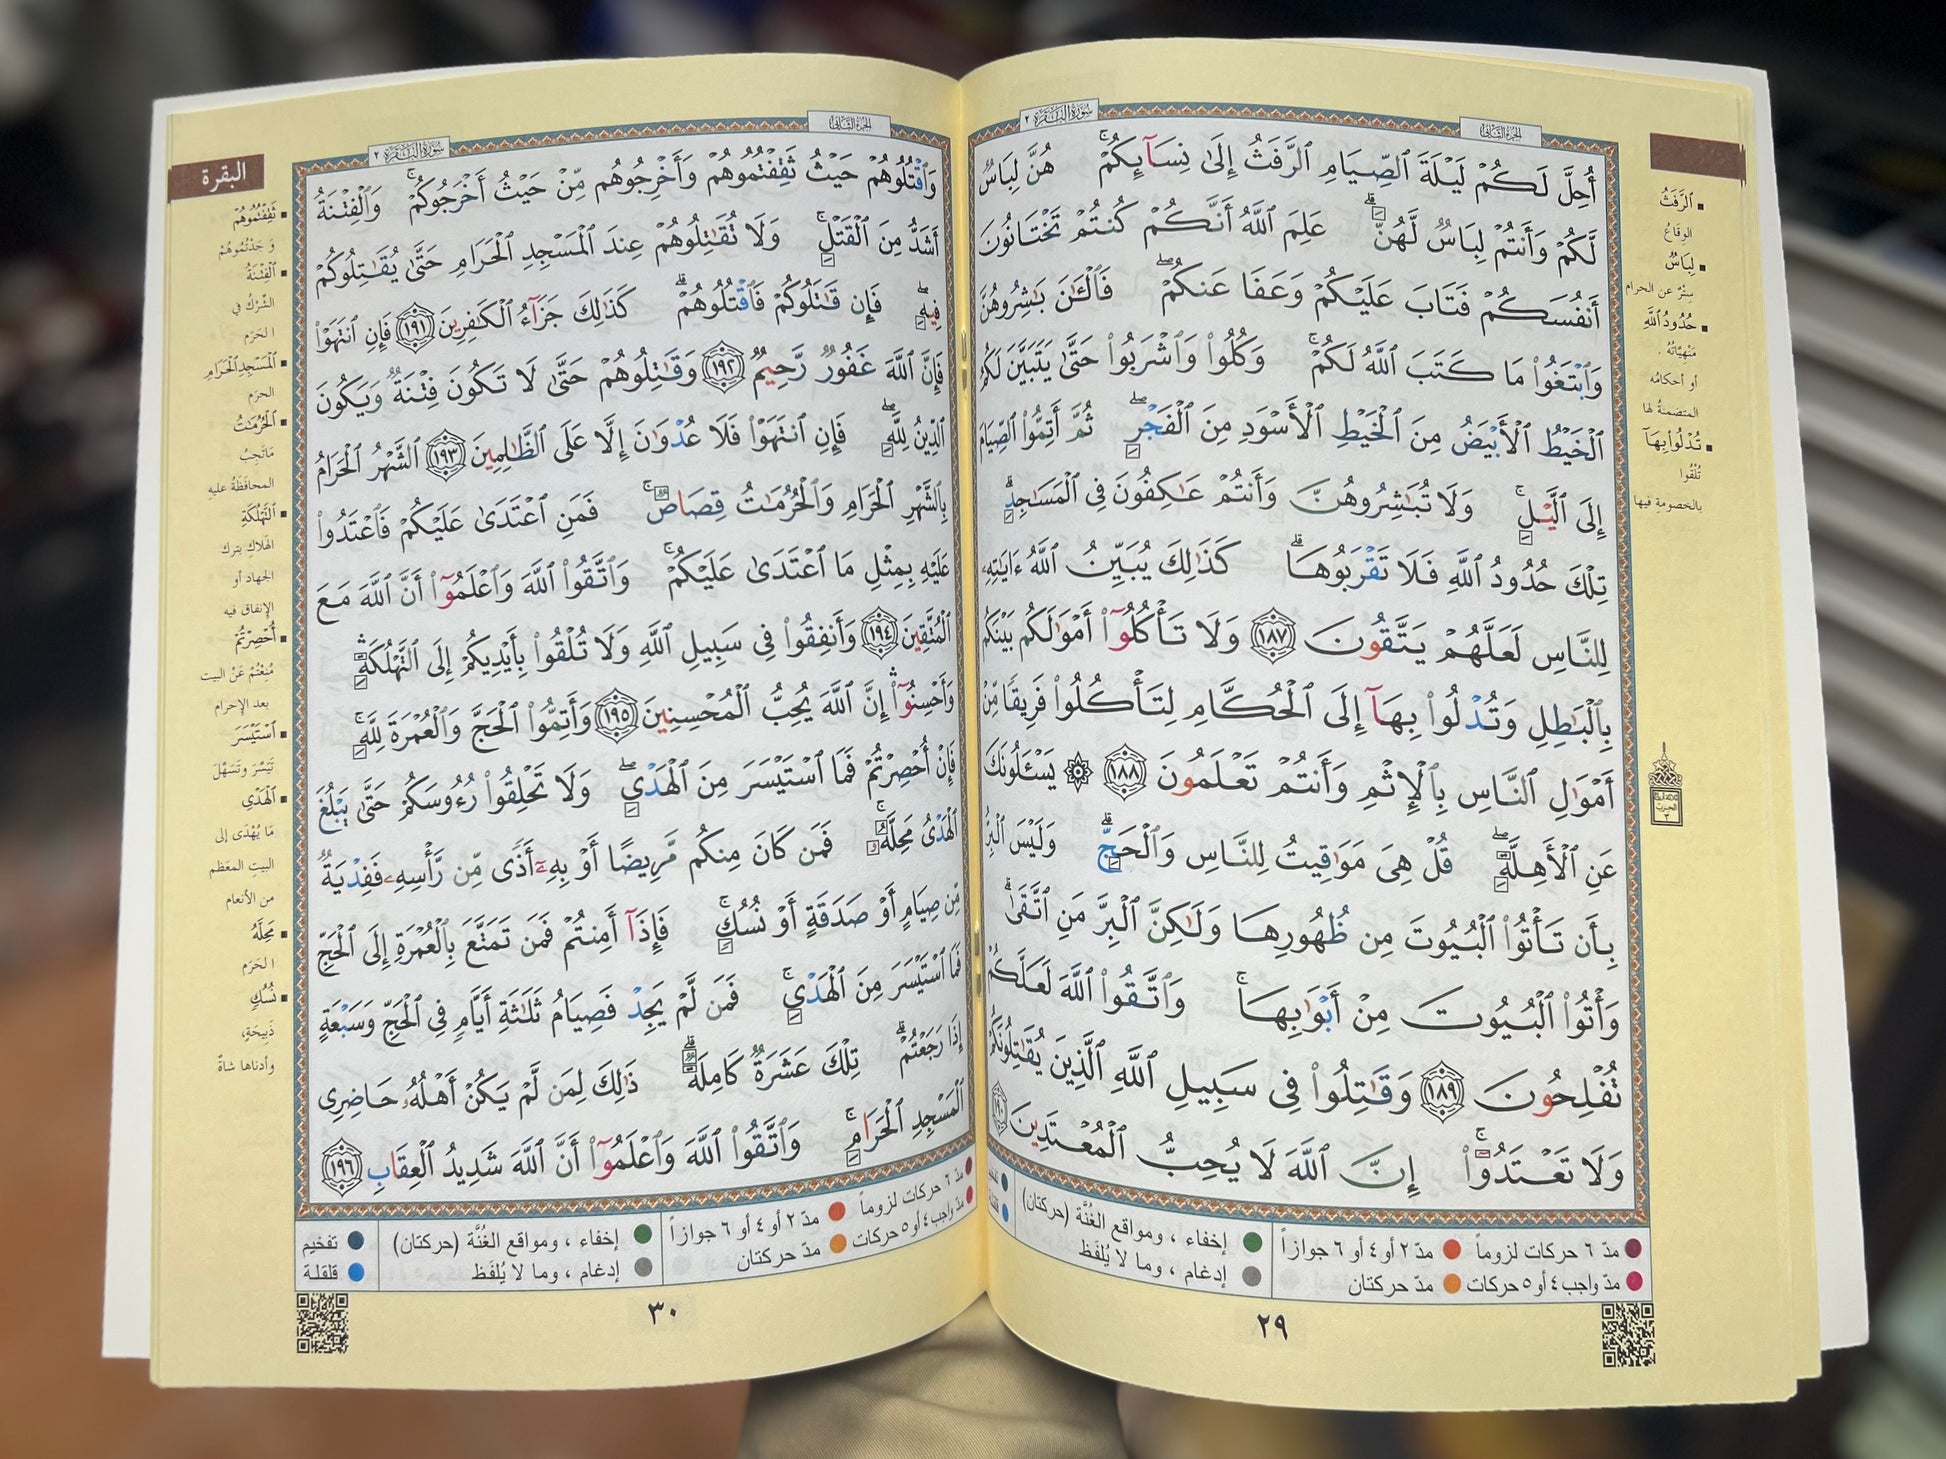 سُورَةُ البَقَرَةِ ٢
الجزء الثاني
أُحِلَّ لَكُمْ لَيْلَةَ ٱلصِّيَامِ ٱلرَّفَثُ إِلَىٰ نِسَآئِكُمْ ۚ هُنَّ لِبَاسٌ
لَّكُمْ وَأَنتُمْ لِبَاسٌ لَّهُنَّ ۗ عَلِمَ ٱللَّهُ أَنَّكُمْ كُنتُمْ تَخْتَانُونَ
أَنفُسَكُمْ فَتَابَ عَلَيْكُمْ وَعَفَا عَنكُمْ ۖ فَٱلْـَٰٔنَ بَـٰشِرُوهُنَّ
وَٱبْتَغُوا۟ مَا كَتَبَ ٱللَّهُ لَكُمْ ۚ وَكُلُوا۟ وَٱشْرَبُوا۟ حَتَّىٰ يَتَبَيَّنَ لَكُمُ
ٱلْخَيْطُ ٱلْأَبْيَضُ مِنَ ٱلْخَيْطِ ٱلْأَسْوَدِ مِنَ ٱلْفَجْرِ ۖ ثُمَّ أَتِمُّوا۟ ٱلصِّيَامَ
إِلَى ٱلَّيْلِ ۚ وَلَا تُبَـٰشِرُوهُنَّ وَأَنتُمْ عَـٰكِفُونَ فِى ٱلْمَسَـٰجِدِ ۗ
تِلْكَ حُدُودُ ٱللَّهِ فَلَا تَقْرَبُوهَا ۗ كَذَٰلِكَ يُبَيِّنُ ٱللَّهُ ءَايَـٰتِهِۦ
لِلنَّاسِ لَعَلَّهُمْ يَتَّقُونَ ١٨٧ وَلَا تَأْكُلُوٓا۟ أَمْوَٰلَكُم بَيْنَكُم
بِٱلْبَـٰطِلِ وَتُدْلُوا۟ بِهَآ إِلَى ٱلْحُكَّامِ لِتَأْكُلُوا۟ فَرِيقًا مِّنْ
أَمْوَٰلِ ٱلنَّاسِ بِٱلْإِثْمِ وَأَنتُمْ تَعْلَمُونَ ١٨٨ ۞ يَسْـَٔلُونَكَ
عَنِ ٱلْأَهِلَّةِ ۖ قُلْ هِىَ مَوَٰقِيتُ لِلنَّاسِ وَٱلْحَجِّ ۗ وَلَيْسَ ٱلْبِرُّ
بِأَن تَأْتُوا۟ ٱلْبُيُوتَ مِن ظُهُورِهَا وَلَـٰكِنَّ ٱلْبِرَّ مَنِ ٱتَّقَىٰ ۗ
وَأْتُوا۟ ٱلْبُيُوتَ مِنْ أَبْوَٰبِهَا ۚ وَٱتَّقُوا۟ ٱللَّهَ لَعَلَّكُمْ
تُفْلِحُونَ ١٨٩ وَقَـٰتِلُوا۟ فِى سَبِيلِ ٱللَّهِ ٱلَّذِينَ يُقَـٰتِلُونَكُمْ
وَلَا تَعْتَدُوٓا۟ ۚ إِنَّ ٱللَّهَ لَا يُحِبُّ ٱلْمُعْتَدِينَ ١٩٠
ٱلرَّفَثُ
الوِقَاعُ
لِبَاسٌ
سِتْرٌ عن الحرام
حُدُودُ ٱللَّهِ
مَنْهِيَّاتُهُ .
أو أحكامُه
المتضمنةُ لها
تُدْلُوا۟ بِهَآ
تُلْقُوا
بالخصومةِ فيها
مدّ ٦ حركات لزوماً
مدّ ٢ أو ٤ أو ٦ جوازاً
إخفاء ، ومواقع الغُنَّة (حركتان)
مدّ واجب ٤ أو ٥ حركات
مدّ حركتان
إدغام ، وما لا يُلفَظ
٢٩
الجزء الثاني
سُورَةُ البَقَرَةِ ٢
البقرة
وَٱقْتُلُوهُمْ حَيْثُ ثَقِفْتُمُوهُمْ وَأَخْرِجُوهُم مِّنْ حَيْثُ أَخْرَجُوكُمْ ۚ وَٱلْفِتْنَةُ
أَشَدُّ مِنَ ٱلْقَتْلِ ۚ وَلَا تُقَـٰتِلُوهُمْ عِندَ ٱلْمَسْجِدِ ٱلْحَرَامِ حَتَّىٰ يُقَـٰتِلُوكُمْ
فِيهِ ۖ فَإِن قَـٰتَلُوكُمْ فَٱقْتُلُوهُمْ ۗ كَذَٰلِكَ جَزَآءُ ٱلْكَـٰفِرِينَ ١٩١ فَإِنِ ٱنتَهَوْا۟
فَإِنَّ ٱللَّهَ غَفُورٌ رَّحِيمٌ ١٩٢ وَقَـٰتِلُوهُمْ حَتَّىٰ لَا تَكُونَ فِتْنَةٌ وَيَكُونَ
ٱلدِّينُ لِلَّهِ ۖ فَإِنِ ٱنتَهَوْا۟ فَلَا عُدْوَٰنَ إِلَّا عَلَى ٱلظَّـٰلِمِينَ ١٩٣ ٱلشَّهْرُ ٱلْحَرَامُ
بِٱلشَّهْرِ ٱلْحَرَامِ وَٱلْحُرُمَـٰتُ قِصَاصٌ ۚ فَمَنِ ٱعْتَدَىٰ عَلَيْكُمْ فَٱعْتَدُوا۟
عَلَيْهِ بِمِثْلِ مَا ٱعْتَدَىٰ عَلَيْكُمْ ۚ وَٱتَّقُوا۟ ٱللَّهَ وَٱعْلَمُوٓا۟ أَنَّ ٱللَّهَ مَعَ
ٱلْمُتَّقِينَ ١٩٤ وَأَنفِقُوا۟ فِى سَبِيلِ ٱللَّهِ وَلَا تُلْقُوا۟ بِأَيْدِيكُمْ إِلَى ٱلتَّهْلُكَةِ ۛ
وَأَحْسِنُوٓا۟ ۛ إِنَّ ٱللَّهَ يُحِبُّ ٱلْمُحْسِنِينَ ١٩٥ وَأَتِمُّوا۟ ٱلْحَجَّ وَٱلْعُمْرَةَ لِلَّهِ ۚ
فَإِنْ أُحْصِرْتُمْ فَمَا ٱسْتَيْسَرَ مِنَ ٱلْهَدْىِ ۖ وَلَا تَحْلِقُوا۟ رُءُوسَكُمْ حَتَّىٰ يَبْلُغَ
ٱلْهَدْىُ مَحِلَّهُۥ ۚ فَمَن كَانَ مِنكُم مَّرِيضًا أَوْ بِهِۦٓ أَذًى مِّن رَّأْسِهِۦ فَفِدْيَةٌ
مِّن صِيَامٍ أَوْ صَدَقَةٍ أَوْ نُسُكٍ ۚ فَإِذَآ أَمِنتُمْ فَمَن تَمَتَّعَ بِٱلْعُمْرَةِ إِلَى ٱلْحَجِّ
فَمَا ٱسْتَيْسَرَ مِنَ ٱلْهَدْىِ ۚ فَمَن لَّمْ يَجِدْ فَصِيَامُ ثَلَـٰثَةِ أَيَّامٍ فِى ٱلْحَجِّ وَسَبْعَةٍ
إِذَا رَجَعْتُمْ ۗ تِلْكَ عَشَرَةٌ كَامِلَةٌ ۗ ذَٰلِكَ لِمَن لَّمْ يَكُنْ أَهْلُهُۥ حَاضِرِى
ٱلْمَسْجِدِ ٱلْحَرَامِ ۚ وَٱتَّقُوا۟ ٱللَّهَ وَٱعْلَمُوٓا۟ أَنَّ ٱللَّهَ شَدِيدُ ٱلْعِقَابِ ١٩٦
ثَقِفْتُمُوهُمْ
وَجَدْتُمُوهُمْ
ٱلْفِتْنَةُ
الشِّرْكُ في
الحَرَم
ٱلْمَسْجِدِ ٱلْحَرَامِ
الحرَم
ٱلْحُرُمَـٰتُ
مَاتَجِبُ
المحافَظَةُ عليهِ
ٱلتَّهْلُكَةِ
الهَلاكِ بترك
الجهاد أو
الإنفاق فيه
أُحْصِرْتُمْ
مُنِعْتُمْ عَنْ البيت
بعد الإحرام
ٱسْتَيْسَرَ
تَيَسَّرَ وتَسَهَّلَ
ٱلْهَدْىِ
مَا يُهْدَى إلى
البيت المعَظم
من الأنعام
مَحِلَّهُۥ
الحَرَم
نُسُكٍ
ذَبِيحَةٍ،
وأدناها شاةٌ
مدّ ٦ حركات لزوماً
مدّ ٢ أو ٤ أو ٦ جوازاً
إخفاء ، ومواقع الغُنَّة (حركتان)
تفخيم
مدّ واجب ٤ أو ٥ حركات
مدّ حركتان
إدغام ، وما لا يُلفَظ
قلقلة
٣٠